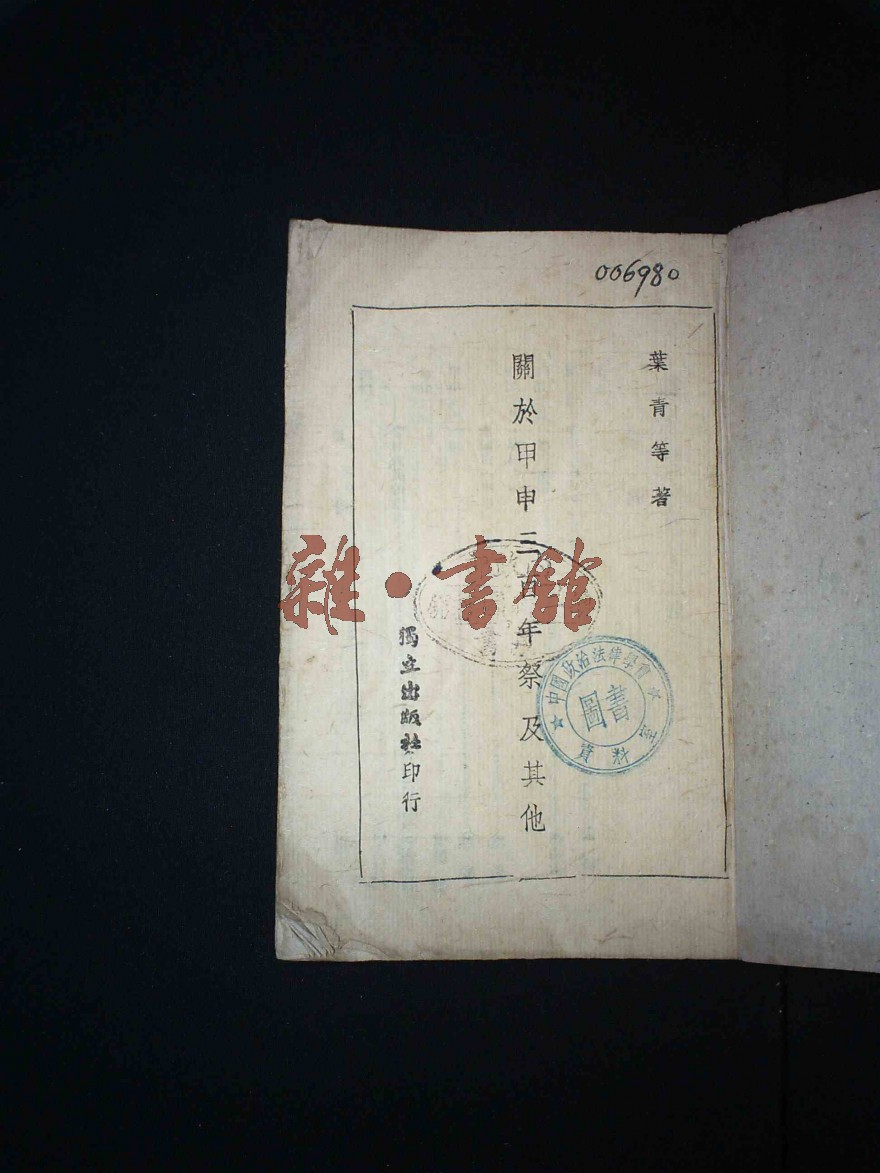 006980
葉青等著
關於甲申三百年祭及其他
獨立出版社印行
雜·書館
中國政治法律學會
圖書
資料室